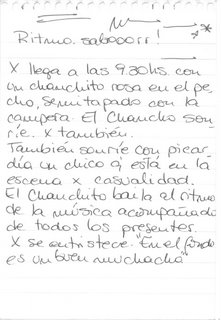 Ritmo. sabooorr!
X llega a las 9.30hs con
un chanchito rosa en el pe
cho, semitapado con la
campera. El Chancho son
ríe. X también.
También sonríe con picar
día un chico q' está en la
escena x casualidad.
El Chanchito baila al ritmo
de la música acompañado
de todos los presentes.
X se entristece. "En el fondo
es un buen muchacho"